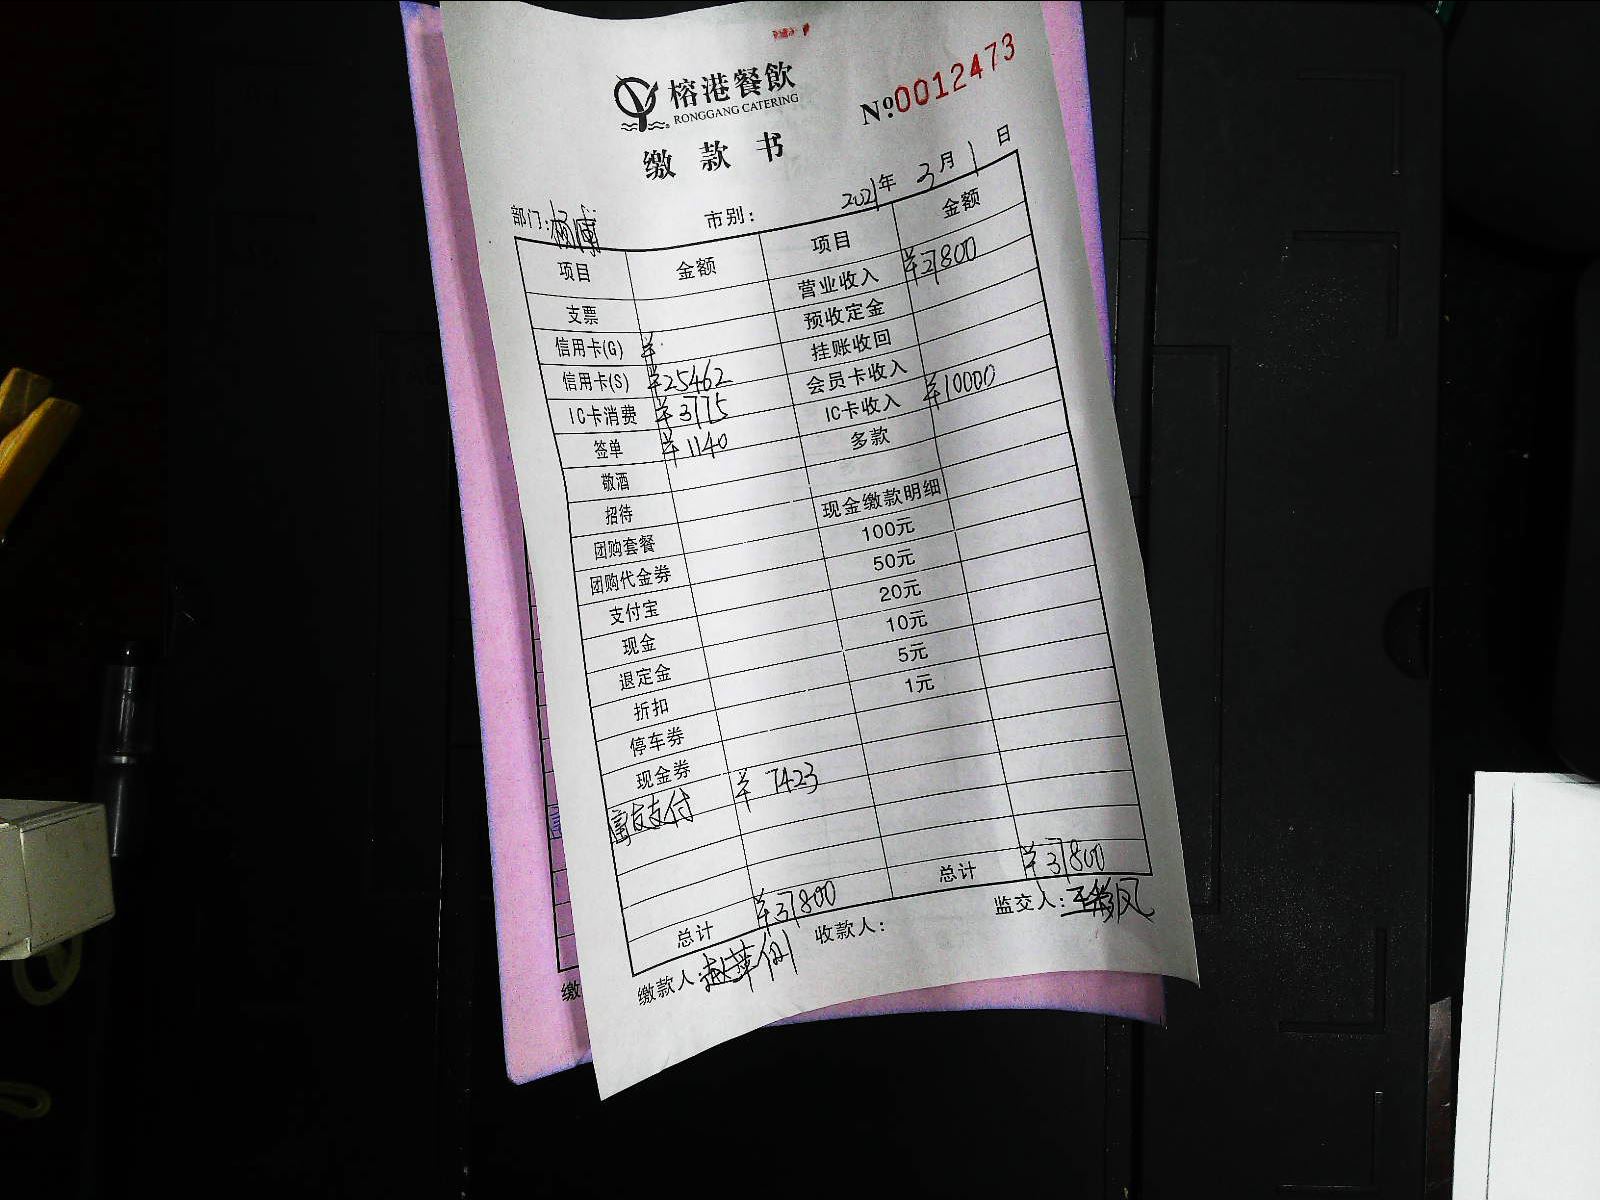 榕港餐飲
RONGGANG CATERING
Nº:0012473
缴款书
部门:杨浦 市别: 2021年3月1日
项目 金额 项目 金额
支票 营业收入 ¥27800
信用卡(G) ¥ 预收定金
信用卡(S) ¥25462 挂账收回
IC卡消费 ¥3775 会员卡收入
签单 ¥1140 IC卡收入 ¥10000
敬酒 多款
招待
团购套餐 现金缴款明细
团购代金券 100元
支付宝 50元
现金 20元
退定金 10元
折扣 5元
停车券 1元
现金券
富友支付 ¥7423
总计 ¥37800 总计 ¥37800
缴款人: 收款人: 监交人:
缴